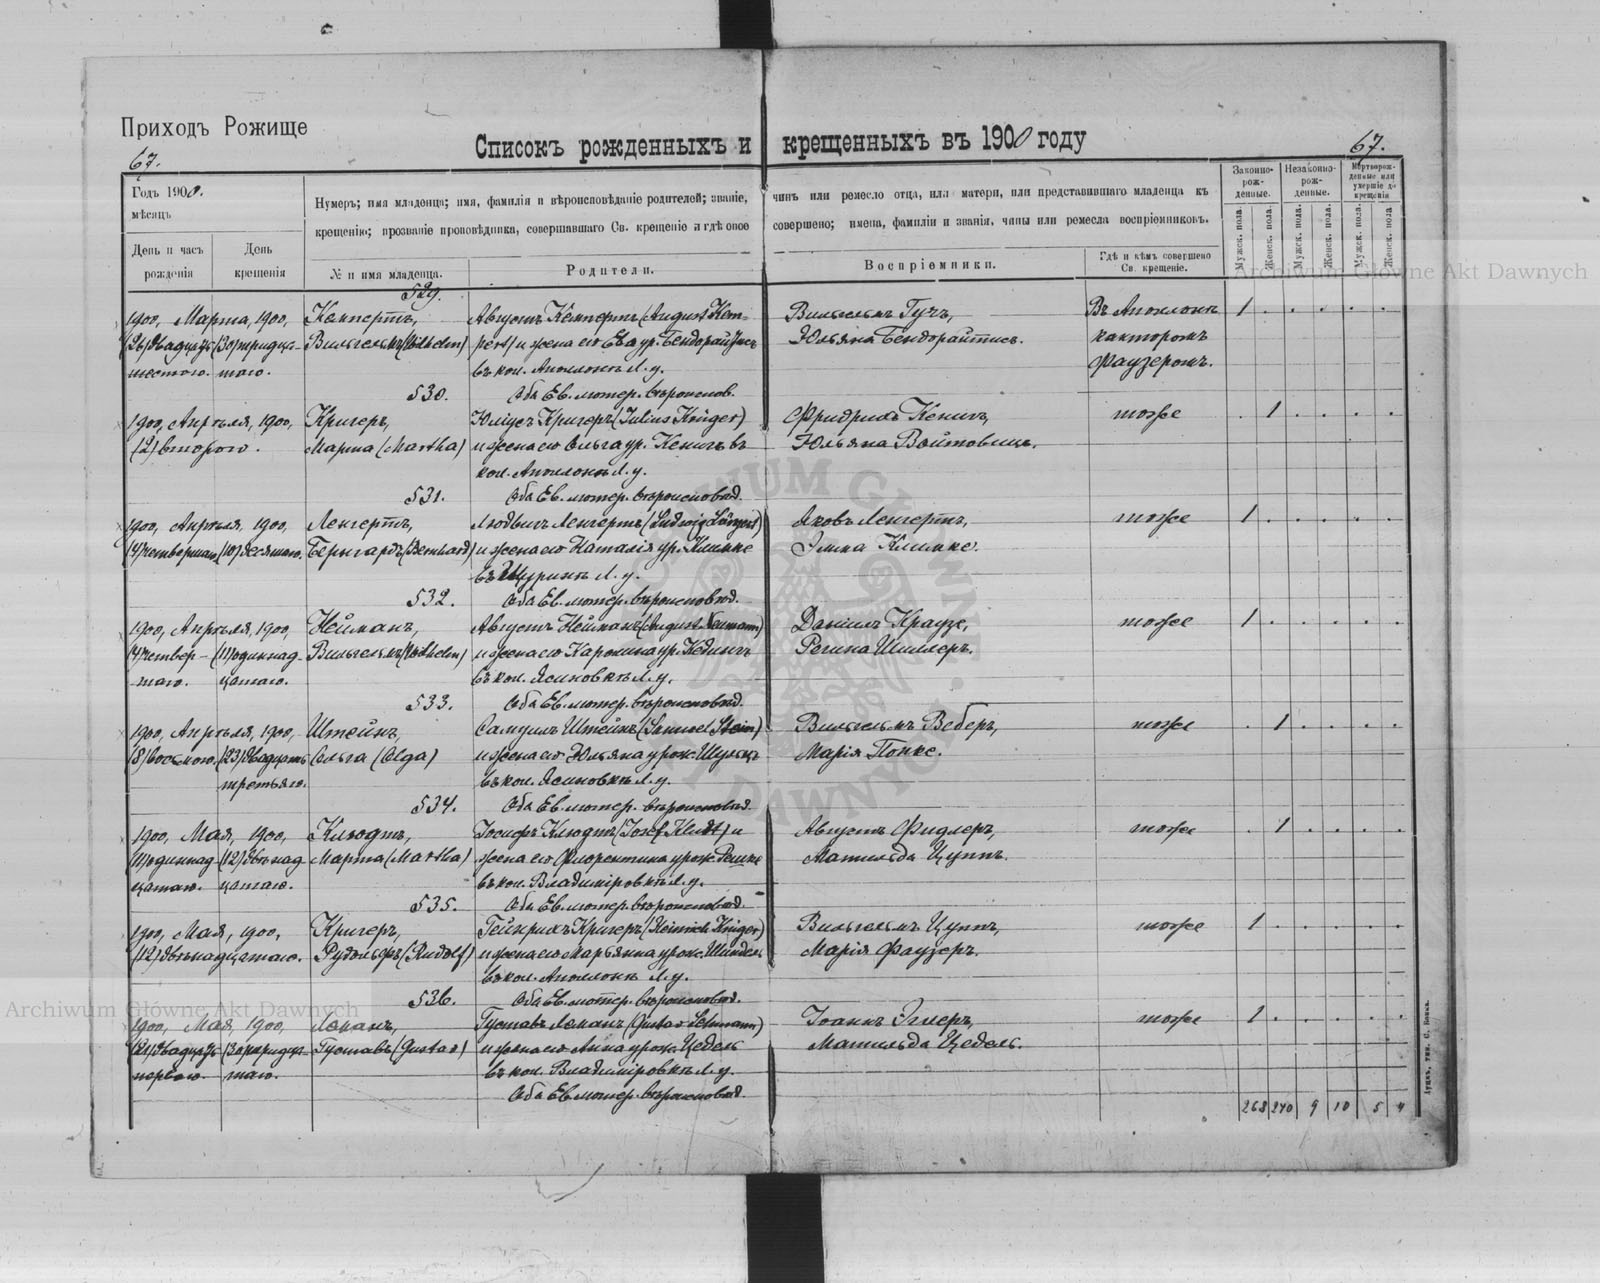 Приходъ Рожище
Списокъ рожденныхъ и крещенныхъ въ 1900 году
67.
67.
Годъ 1900.
мѣсяцъ
День и часъ рожденія
День крещенія
Нумеръ; имя младенца; имя, фамилія и вѣроисповѣданіе родителей; званіе, чинъ или ремесло отца, или матери, или представившаго младенца къ
крещенію; прозваніе проповѣдника, совершавшаго Св. крещеніе и гдѣ оное совершено; имена, фамиліи и званія, чины или ремесла воспріемниковъ.
№ и имя младенца.
Родители.
Воспріемники.
Гдѣ и кѣмъ совершено Св. крещеніе.
Законно-рож-денные.
Незаконно-рож-денные.
Мертворож-денные или умершіе до крещенія
Мужск. пола.
Женск. пола.
Мужск. пола.
Женск. пола.
Мужск. пола.
Женск. пола
529.
1900, Марта, 1900, Кемпертъ, Августъ Кемпертъ (August Kem- Вильгельмъ Гучъ, Въ Аполлонѣ 1
(26) двадцать (30) тридца- Вильгельмъ (Wilhelm) pert) и жена его Ева ур. Бендорайтисъ Юльяна Бендорайтисъ. канторомъ
шестого. таго. въ кол. Аполлонѣ Л. у. Фаузеромъ.
530. Оба Ев. лютер. вѣроисповѣд.
1900, Апрѣля, 1900, Кригеръ, Юліусъ Кригеръ (Julius Krüger) Фридрихъ Кенигъ, тоже 1
(2) второго. Марта (Martha) и жена его Ольга ур. Кенигъ въ Юльяна Войтовицъ.
кол. Аполлонѣ Л. у.
531. Оба Ев. лютер. вѣроисповѣд.
1900, Апрѣля, 1900, Ленгертъ, Людвигъ Ленгертъ (Ludwig Längert) Яковъ Ленгертъ, тоже 1
(4) четвертаго (10) десятаго. Бернгардъ (Bernhard) и жена его Наталія ур. Климке Эмма Климке.
въ Щуринѣ Л. у.
532. Оба Ев. лютер. вѣроисповѣд.
1900, Апрѣля, 1900, Нейманъ, Августъ Нейманъ (August Neumann) Даніилъ Краузе, тоже 1
(4) четвер- (11) одиннад- Вильгельмъ (Wilhelm) и жена его Каролина ур. Кедингъ Регина Шиллеръ.
таго. цатаго. въ кол. Ясиновкѣ Л. у.
533. Оба Ев. лютер. вѣроисповѣд.
1900, Апрѣля, 1900, Штейнъ, Самуилъ Штейнъ (Samuel Stein) Вильгельмъ Веберъ, тоже 1
(8) восьмого, (23) двадцать Ольга (Olga) и жена его Юльяна урож. Шульцъ Марія Попке.
третьяго. въ кол. Ясиновкѣ Л. у.
534. Оба Ев. лютер. вѣроисповѣд.
1900, Мая, 1900, Клюдтъ, Іосифъ Клюдтъ (Josef Kludt) и Августъ Фидлеръ, тоже 1
(11) одиннад (12) двѣнад Марта (Martha) жена его Флорентина урож. Решке Матильда Цуппъ.
цатаго. цатаго. въ кол. Владиміровкѣ Л. у.
535. Оба Ев. лютер. вѣроисповѣд.
1900, Мая, 1900, Кригеръ, Гейнрихъ Кригеръ (Heinrich Krüger) Вильгельмъ Цуппъ, тоже 1
(12) двѣнадцатаго. Рудольфъ (Rudolf) и жена его Марьянна урож. Шиндель Марія Фаузеръ.
въ кол. Аполлонѣ Л. у.
536. Оба Ев. лютер. вѣроисповѣд.
1900, Мая, 1900, Леманъ, Густавъ Леманъ (Gustav Lehmann) Іоаннъ Эглеръ, тоже 1
(21) двадцать (30) тридца- Густавъ (Gustav) и жена его Анна урож. Цедель Матильда Цедель.
перваго таго. въ кол. Владиміровкѣ Л. у.
Оба Ев. лютер. вѣроисповѣд.
268 240 9 10 5 4
Луцкъ, тип. С. Бонка.
Archiwum Główne Akt Dawnych
Archiwum Główne Akt Dawnych